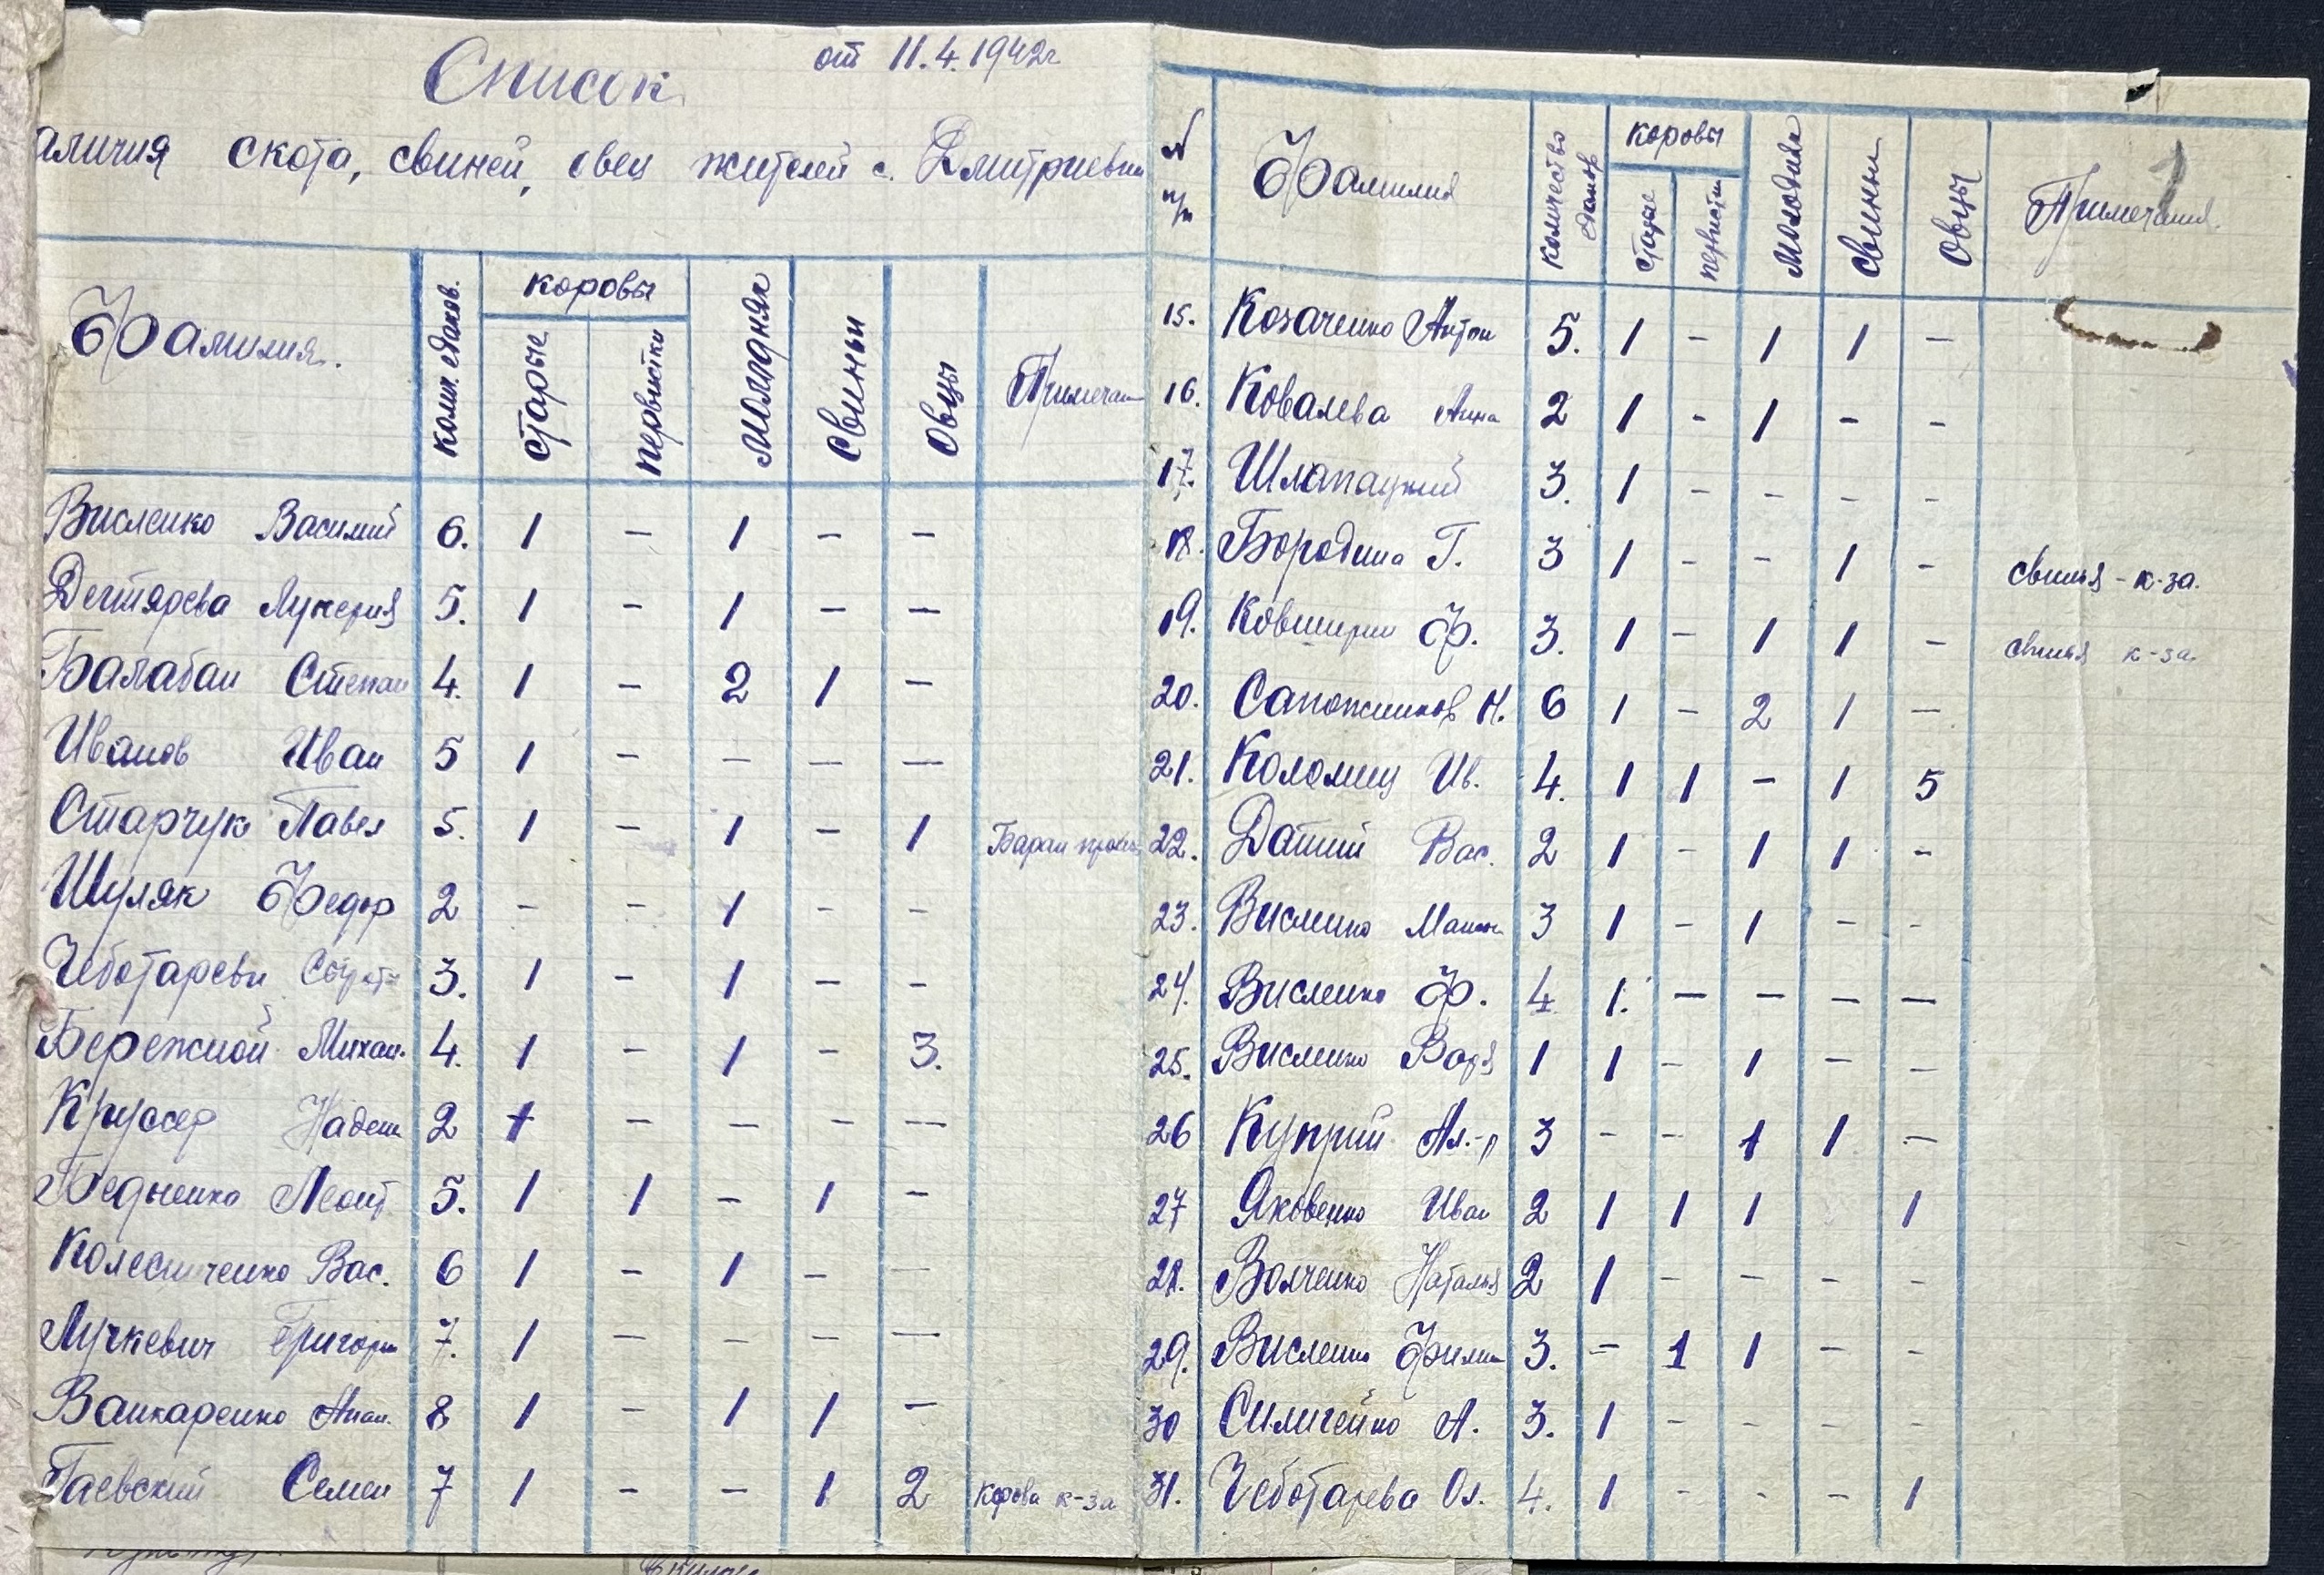 Список от 11.4.1942г
аличия скота, свиней, овец жителей с. Дмитриевки
Фамилия.
колич. едаков.
коровы
старые
первистки
молодняк
свиньи
Овцы
Примечан
Висленко Василий 6. 1 – 1 – –
Дегтярева Лукерия 5. 1 – 1 – –
Балабан Степан 4. 1 – 2 1 –
Иванов Иван 5 1 – – – –
Старчук Павел 5. 1 – 1 – 1 Баран
Шуляк Федор 2 – – 1 – –
Чеботарева 3. 1 – 1 – –
Бережной Михаи. 4. 1 – 1 – 3.
Надеж 2 1 – – – –
Бедненко Леонт 5. 1 1 – 1 –
Колесниченко Вас. 6 1 – 1 – –
Лучкевич Григори 7. 1 – – – –
Ванкаренко Анан. 8 1 – 1 1 –
Гаевский Семен 7 1 – – 1 2 корова к-за
№ п/п
Фамилия
количество едаков
коровы
старые
первистки
Молодняк
Свиньи
Овцы
Примечания.
15. Козаченко Антон 5. 1 – 1 1 –
16. Ковалева Анна 2 1 – 1 – –
17. Шлапацкий 3. 1 – – – –
18. Бородина Г. 3 1 – – 1 – свинья – к-за.
19. Ф. 3. 1 – 1 1 – свинья к-за.
20. Сапожников Н. 6 1 – 2 1 –
21. Коломиец Ив. 4. 1 1 – 1 5
22. Вас. 2 1 – 1 1 –
23. Висленко 3 1 – 1 – –
24. Висленко Ф. 4 1. – – – –
25. Висленко Варя 1 1 – 1 – –
26 Куприй Ал.-р 3 – – 1 1 –
27 Яковенко Иван 2 1 1 1 1
28. Волченко Наталья 2 1 – – – –
29. Висленко Филип 3. – 1 1 – –
30 Силичейко А. 3. 1 – – – –
31. Чеботарева Ол. 4. 1 – – – 1